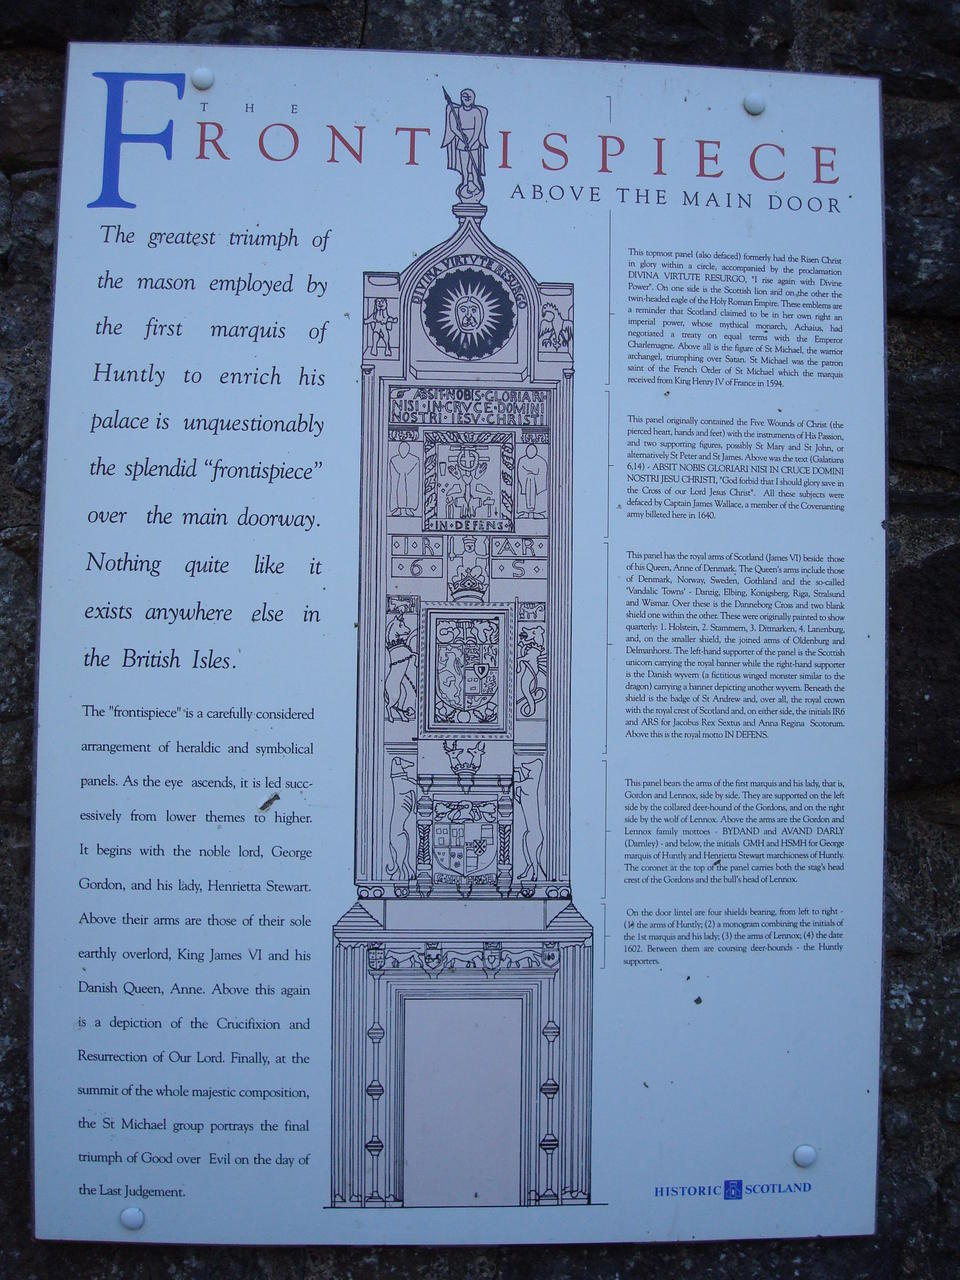 THE
FRONTISPIECE
ABOVE THE MAIN DOOR
The greatest triumph of
the mason employed by
the first marquis of
Huntly to enrich his
palace is unquestionably
the splendid "frontispiece"
over the main doorway.
Nothing quite like it
exists anywhere else in
the British Isles.
The "frontispiece" is a carefully considered
arrangement of heraldic and symbolical
panels. As the eye ascends, it is led succ-
essively from lower themes to higher.
It begins with the noble lord, George
Gordon, and his lady, Henrietta Stewart.
Above their arms are those of their sole
earthly overlord, King James VI and his
Danish Queen, Anne. Above this again
is a depiction of the Crucifixion and
Resurrection of Our Lord. Finally, at the
summit of the whole majestic composition,
the St Michael group portrays the final
triumph of Good over Evil on the day of
the Last Judgement.
DIVINA VIRTVTE RESURGO
ABSIT·NOBIS·GLORIARI·
NISI·IN·CRVCE·DOMINI
NOSTRI·IESV·CHRISTI
·IN·DEFENS·
·I·R· ·A·R·
6 S
This topmost panel (also defaced) formerly had the Risen Christ
in glory within a circle, accompanied by the proclamation
DIVINA VIRTUTE RESURGO, "I rise again with Divine
Power". On one side is the Scottish lion and on the other the
twin-headed eagle of the Holy Roman Empire. These emblems are
a reminder that Scotland claimed to be in her own right an
imperial power, whose mythical monarch, Achaius, had
negotiated a treaty on equal terms with the Emperor
Charlemagne. Above all is the figure of St Michael, the warrior
archangel, triumphing over Satan. St Michael was the patron
saint of the French Order of St Michael which the marquis
received from King Henry IV of France in 1594.
This panel originally contained the Five Wounds of Christ (the
pierced heart, hands and feet) with the instruments of His Passion,
and two supporting figures, possibly St Mary and St John, or
alternatively St Peter and St James. Above was the text (Galatians
6,14) - ABSIT NOBIS GLORIARI NISI IN CRUCE DOMINI
NOSTRI JESU CHRISTI, "God forbid that I should glory save in
the Cross of our Lord Jesus Christ". All these subjects were
defaced by Captain James Wallace, a member of the Covenanting
army billeted here in 1640.
This panel has the royal arms of Scotland (James VI) beside those
of his Queen, Anne of Denmark. The Queen's arms include those
of Denmark, Norway, Sweden, Gothland and the so-called
'Vandalic Towns' - Danzig, Elbing, Konigsberg, Riga, Stralsund
and Wismar. Over these is the Danneborg Cross and two blank
shield one within the other. These were originally painted to show
quarterly: 1. Holstein, 2. Stammern, 3. Dittmarken, 4. Lanenburg,
and, on the smaller shield, the joined arms of Oldenburg and
Delmanhorst. The left-hand supporter of the panel is the Scottish
unicorn carrying the royal banner while the right-hand supporter
is the Danish wyvern (a fictitious winged monster similar to the
dragon) carrying a banner depicting another wyvern. Beneath the
shield is the badge of St Andrew and, over all, the royal crown
with the royal crest of Scotland and, on either side, the initials IR6
and ARS for Jacobus Rex Sextus and Anna Regina Scotorum.
Above this is the royal motto IN DEFENS.
This panel bears the arms of the first marquis and his lady, that is,
Gordon and Lennox, side by side. They are supported on the left
side by the collared deer-hound of the Gordons, and on the right
side by the wolf of Lennox. Above the arms are the Gordon and
Lennox family mottoes - BYDAND and AVAND DARLY
(Darnley) - and below, the initials GMH and HSMH for George
marquis of Huntly and Henrietta Stewart marchioness of Huntly.
The coronet at the top of the panel carries both the stag's head
crest of the Gordons and the bull's head of Lennox.
On the door lintel are four shields bearing, from left to right -
(1) the arms of Huntly; (2) a monogram combining the initials of
the 1st marquis and his lady; (3) the arms of Lennox; (4) the date
1602. Between them are coursing deer-hounds - the Huntly
supporters.
HISTORIC SCOTLAND